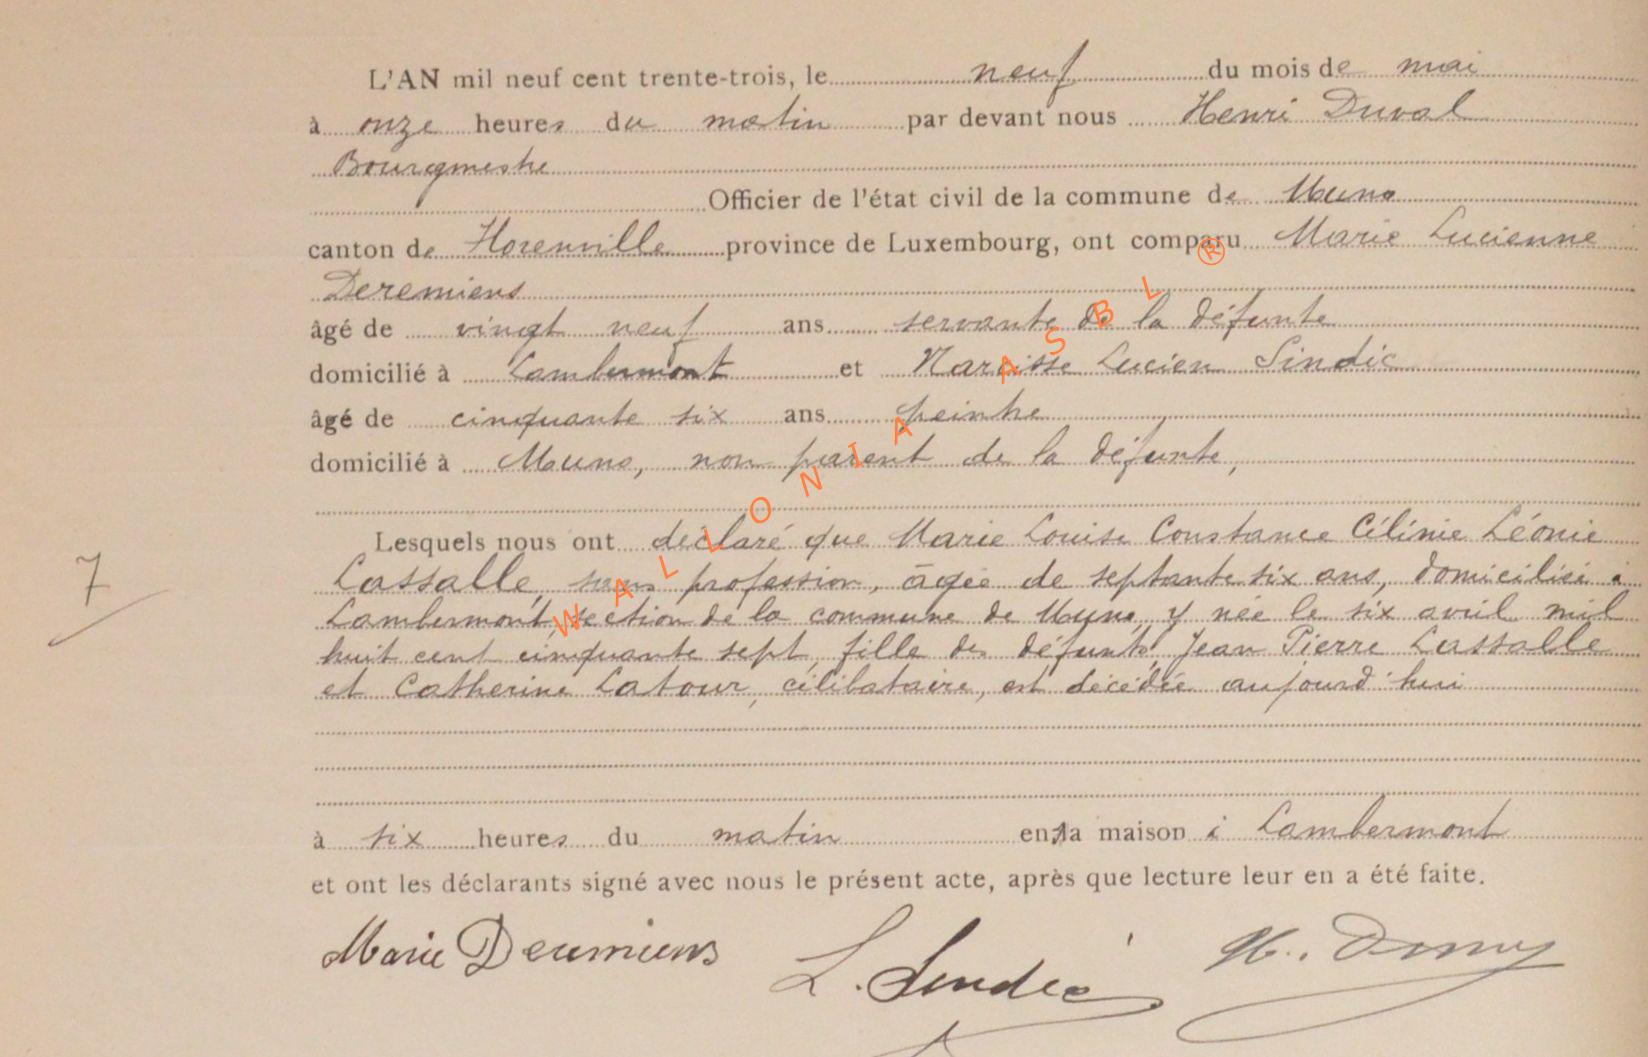 L'AN mil neuf cent trente-trois, le neuf du mois de mai
à onze heures du matin par devant nous Henri Duval
Bourgmestre
Officier de l'état civil de la commune de Muno
canton de Florenville province de Luxembourg, ont comparu Marie Lucienne
Deremiens
âgé de vingt neuf ans servante de la défunte
domicilié à Lambermont et Narcisse Lucien Sindic
âgé de cinquante six ans peintre
domicilié à Muno, non parent de la défunte,
Lesquels nous ont déclaré que Marie Louise Constance Célinie Léonie
7
Lassalle, sans profession, âgée de septante six ans, domiciliée à
Lambermont, section de la commune de Muno, y née le six avril mil
huit cent cinquante sept, fille des défunts Jean Pierre Lassalle
et Catherine Latour, célibataire, est décédée aujourd'hui
à six heures du matin en sa maison à Lambermont
et ont les déclarants signé avec nous le présent acte, après que lecture leur en a été faite.
Marie Deremiens L. Sindic H.
WALLONIA ASBL ®